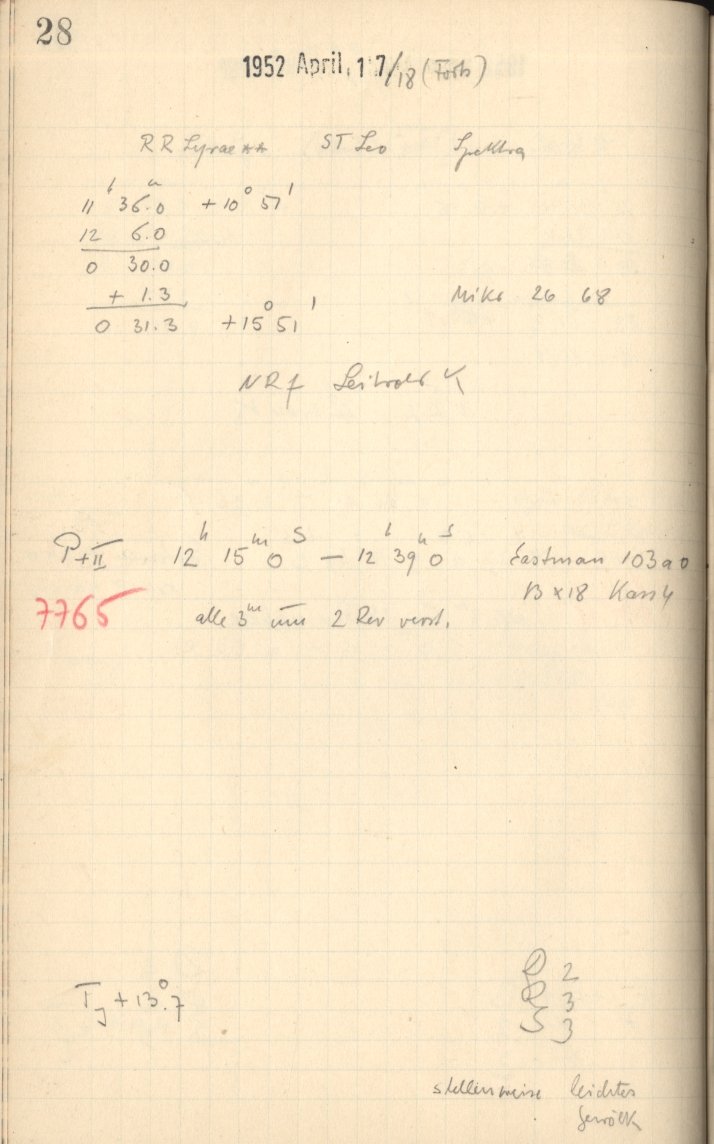 28
1952 April, 17/18 (Forts)
RR Lyrae ** ST Leo Spektra
11h 36.0m +10° 51'
12 6.0
0 30.0
+ 1.3
0 31.3 +15° 51'
Mikr 26 68
NRf Leitrohr K
P+II 12h 15m 0s — 12h 39m 0s Eastman 103a0
B x 18 Kass 4
7765 alle 3m um 2 Rev verst.
TJ +13°.7
D 2
R 3
S 3
stellenweise leichtes
Gewölk